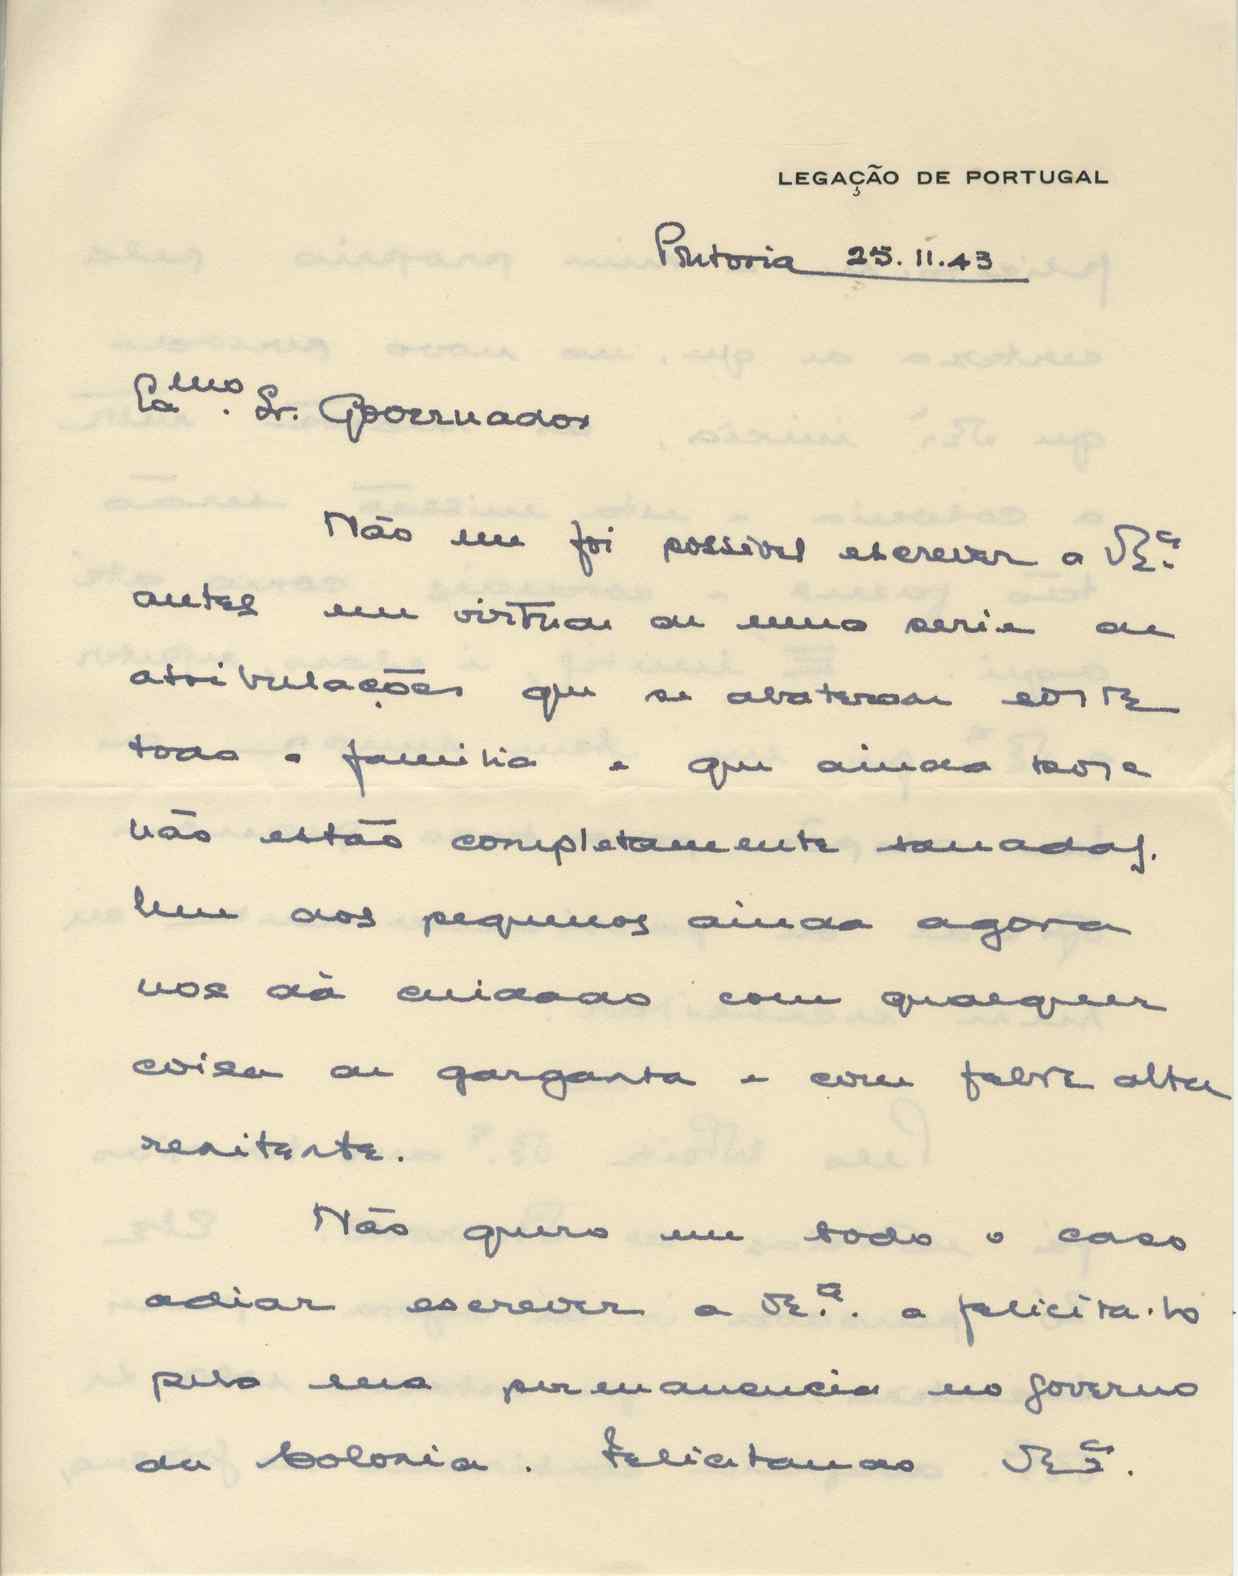 LEGAÇÃO DE PORTUGAL
Pretoria 25.11.43
Exmo. Sr. Governador
Não me foi possivel escrever a V.Ex.ª
antes em virtude de uma serie de
atribulações que se abateram sobre
toda a familia e que ainda hoje
não estão completamente sanadas.
Um dos pequenos ainda agora
nos dà cuidado com qualquer
coisa de garganta e com febre alta
renitente.
Não quero em todo o caso
adiar escrever a VE.ª. a felicita-lo
pela sua permanencia no governo
da Colonia. Felicitando VEª.